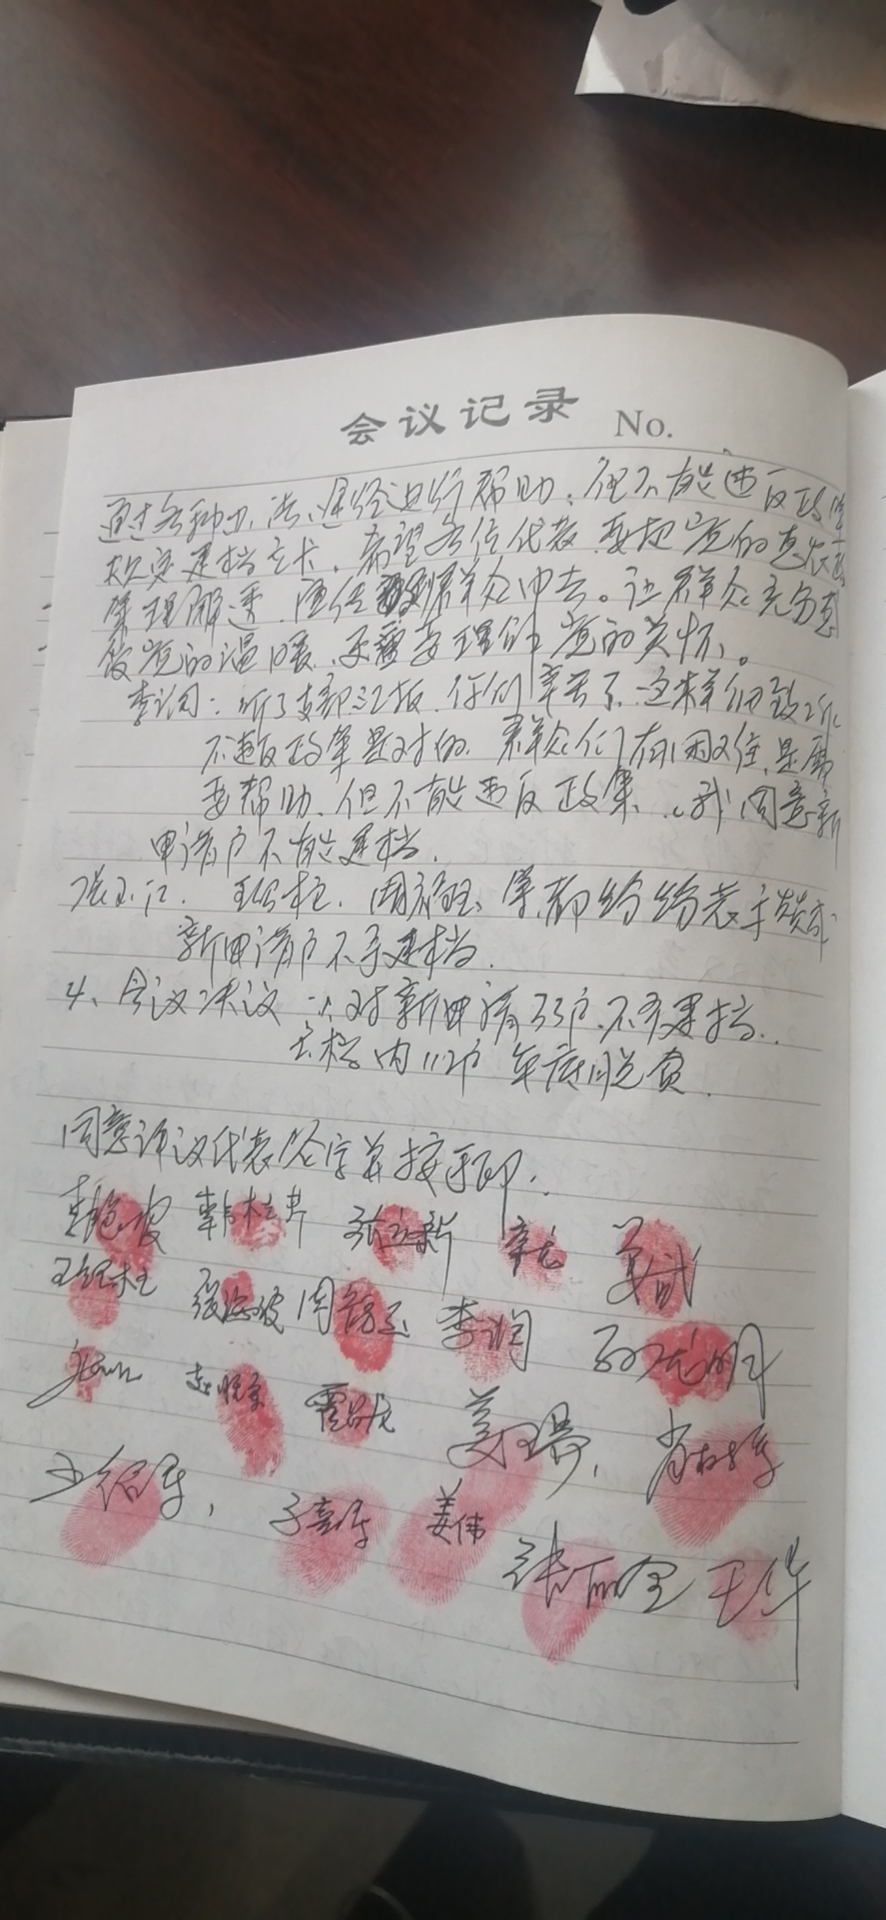 会议记录 No.
通过各种办法、途径进行帮助,但不能违反政策
建档立卡。希望各位代表,要把党的惠农政
策理解透,宣传到群众中去。让群众充分感
受党的温暖、更需要理解党的关怀。
李润:听了支部汇报,你们辛苦了,这样细致工作
不违反政策是对的。群众们有困难,是需
要帮助,但不能违反政策,我同意新
申请户不能建档。
张玉江、王绍柱、周 等都纷纷表示赞成
新申请户不予建档。
4、会议决议:对新申请33户,不予建档。
在档内112户年底脱贫。
同意评议代表签字并按手印:
韩桂芹 张立新 李龙 姜武
王绍柱 张海波 周 李润 孙龙明
赵晓东 霍昌龙 姜玉
王绍军, 姜伟
张丽全 王华